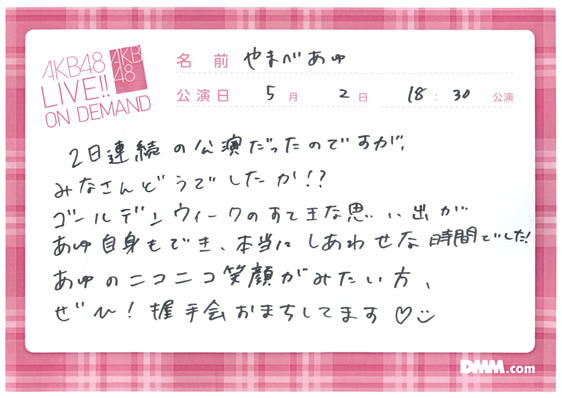 AKB48
LIVE!!
ON DEMAND
AKB
48
名前 やまべあゆ
公演日 5月 2日 18:30 公演
2日連続の公演だったのですが、
みなさんどうでしたか!?
ゴールデンウィークのすてきな思い出が
あゆ自身もでき、本当にしあわせな時間でした!
あゆのニコニコ笑顔がみたい方、
ぜひ!握手会おまちしてます♡
DMM.com